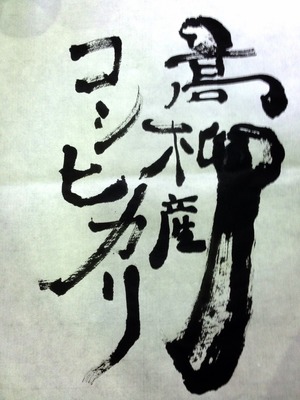 高柳産
コシヒカリ